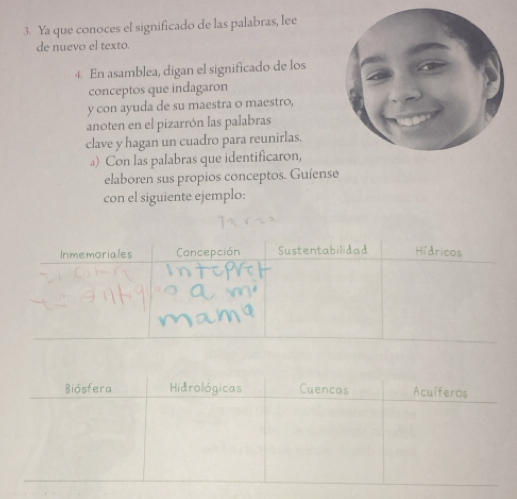 3. Ya que conoces el significado de las palabras, lee
de nuevo el texto.
4. En asamblea, digan el significado de los
conceptos que indagaron
y con ayuda de su maestra o maestro,
anoten en el pizarrón las palabras
clave y hagan un cuadro para reunirlas.
a) Con las palabras que identificaron,
elaboren sus propios conceptos. Guíense
con el siguiente ejemplo:
Inmemoriales Concepción Sustentabilidad Hídricos
a mi
mamá
Biósfera Hidrológicas Cuencas Acuíferos